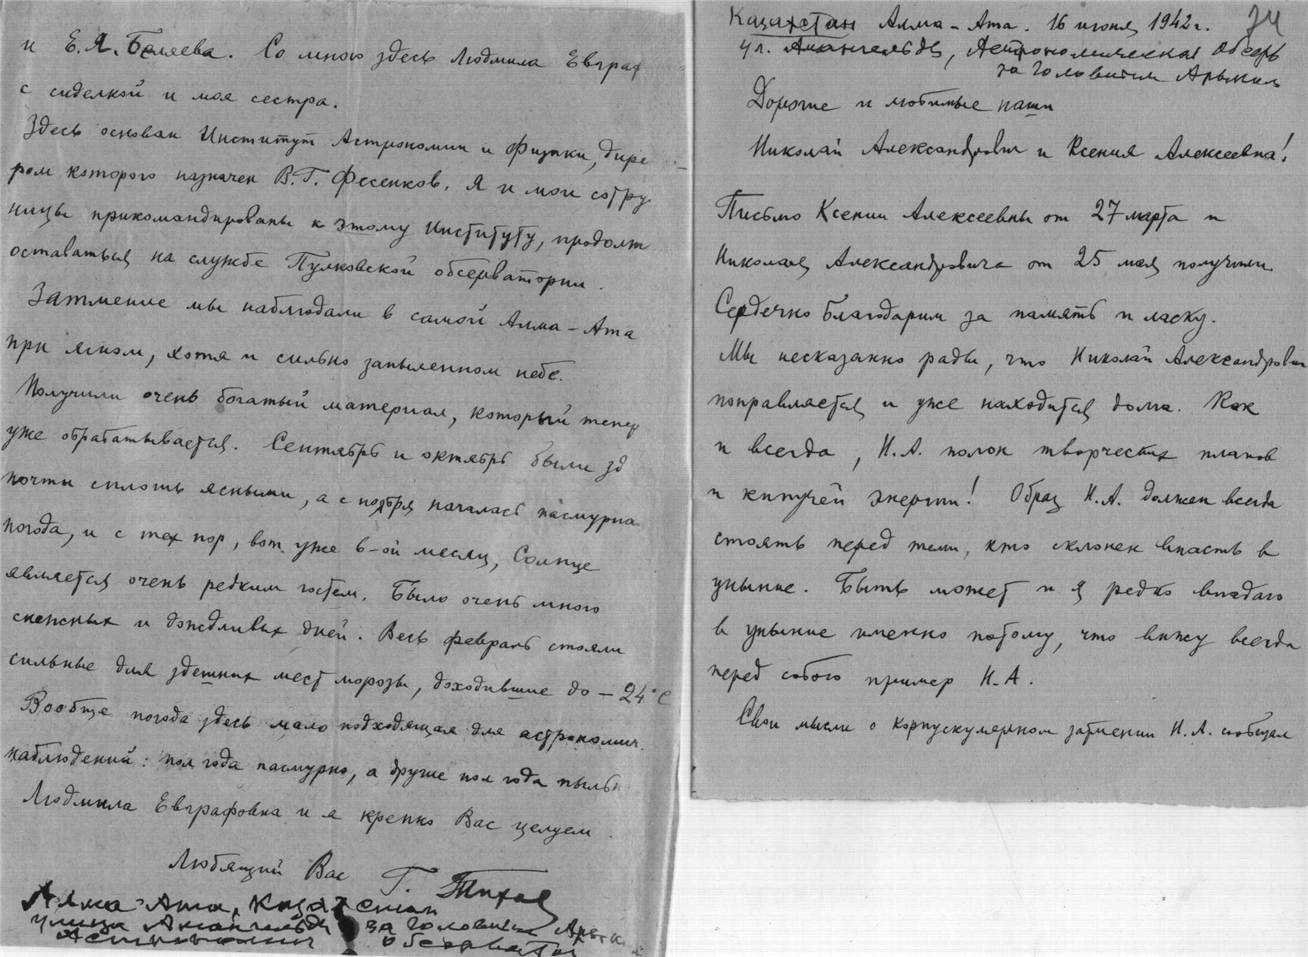 и Е.Я. Беляева. Со мною здесь Людмила Евграф
с сиделкой и моя сестра.
Здесь основан Институт Астрономии и Физики, дире
ром которого назначен В.Г. Фесенков. Я и мои сотру
ницы прикомандированы к этому Институту, продолж
оставаться на службе Пулковской обсерватории.
Затмение мы наблюдали в самой Алма-Ата
при ясном, хотя и сильно запыленном небе.
Получили очень богатый материал, который тепер
уже обрабатывается. Сентябрь и октябрь были зд
почти сплошь ясными, а с ноября началась пасмурна
погода, и с тех пор, вот уже 6-ой месяц, Солнце
является очень редким гостем. Было очень много
снежных и дождливых дней. Весь февраль стояли
сильные для здешних мест морозы, доходившие до -24°С
Вообще погода здесь мало подходящая для астрономич.
наблюдений: пол года пасмурно, а другие пол года пыль
Людмила Евграфовна и я крепко Вас целуем.
Любящий Вас Г. Тихов
Алма-Ата, Казахстан
улица Амангельды за Головным Арыком
обсерватор
74
Казахстан Алма-Ата. 16 июня 1942 г.
ул. Амангельды, Астрономическая Обсерв
за Головным Арыком
Дорогие и любимые наши
Николай Александрович и Ксения Алексеевна!
Письмо Ксении Алексеевны от 27 марта и
Николая Александровича от 25 мая получили.
Сердечно благодарим за память и ласку.
Мы несказанно рады, что Николай Александрович
поправляется и уже находится дома. Как
и всегда, Н.А. полон творческих планов
и кипучей энергии! Образ Н.А. должен всегда
стоять перед теми, кто склонен впасть в
уныние. Быть может и я редко впадаю
в уныние именно потому, что вижу всегда
перед собою пример Н.А.
Свои мысли о корпускулярном затмении Н.А. сообщал